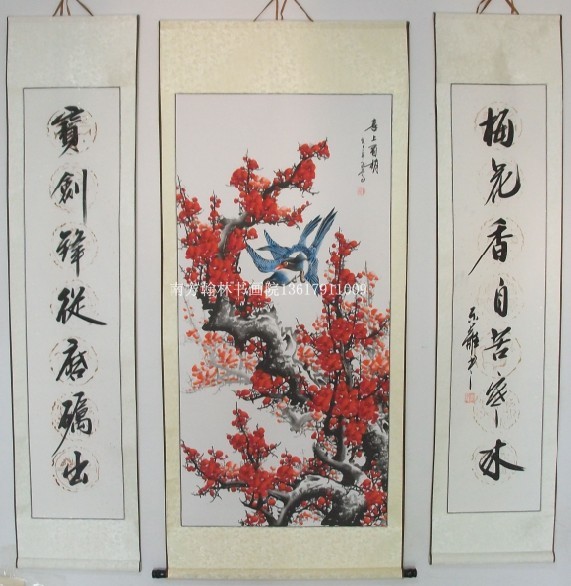 寶劍鋒從磨礪出
喜上眉梢
南方翰林书画院13617911009
梅花香自苦寒来